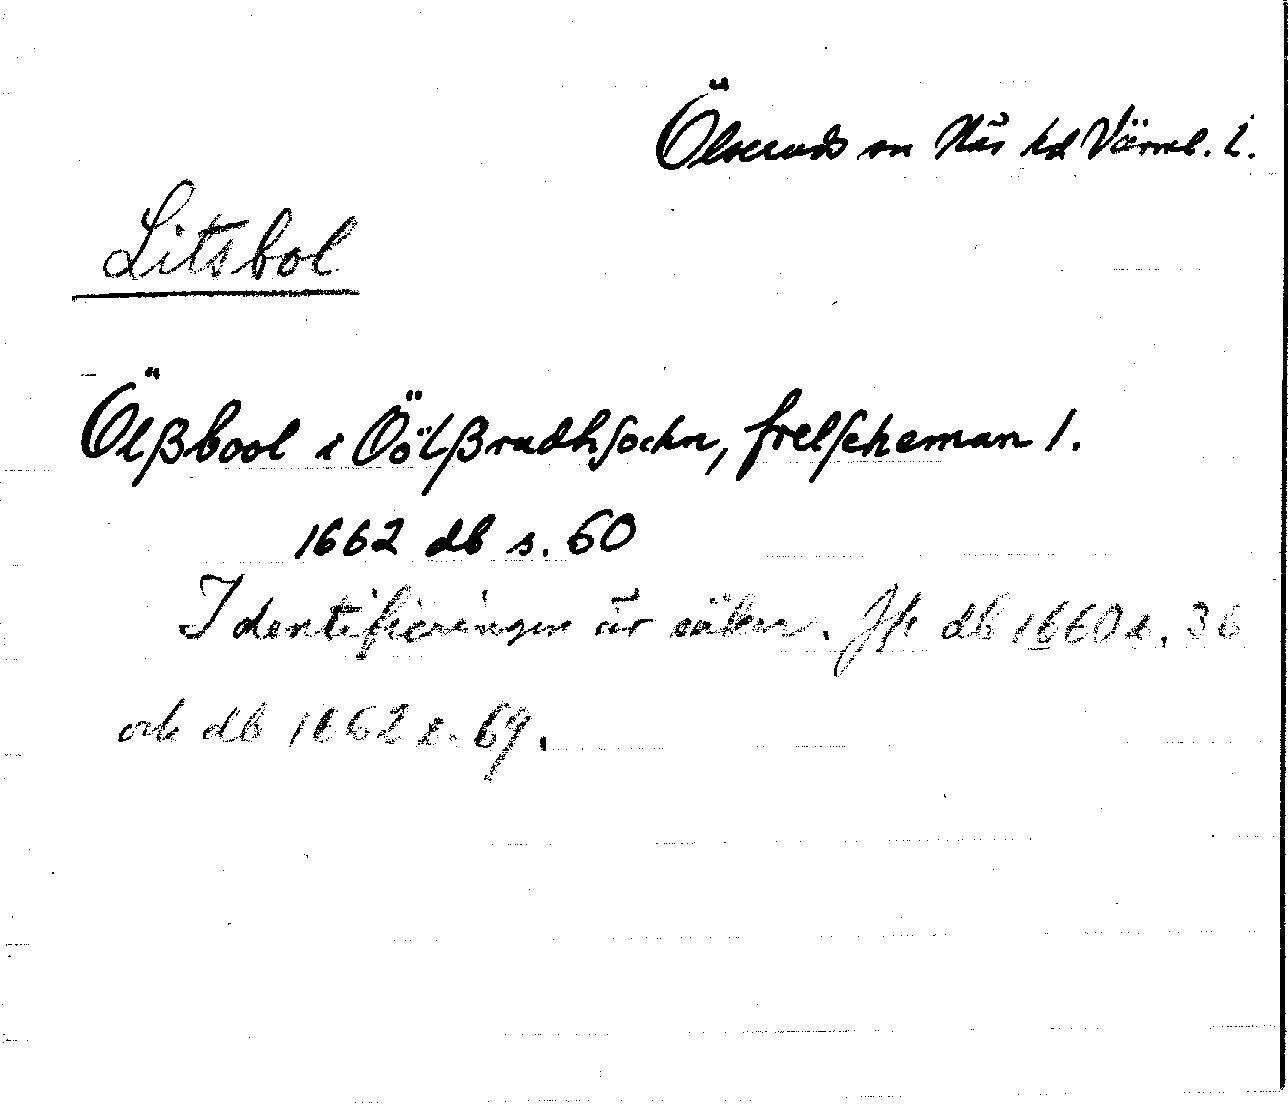 Ölseruds sn Näs hd Värml. l.
Litsbol
Ölßbool i Öölßrudhsochn, frelseheman 1.
1662 db s. 60
Identifieringen är säker. Jfr db 1660 s. 36
och db 1662 s. 69.